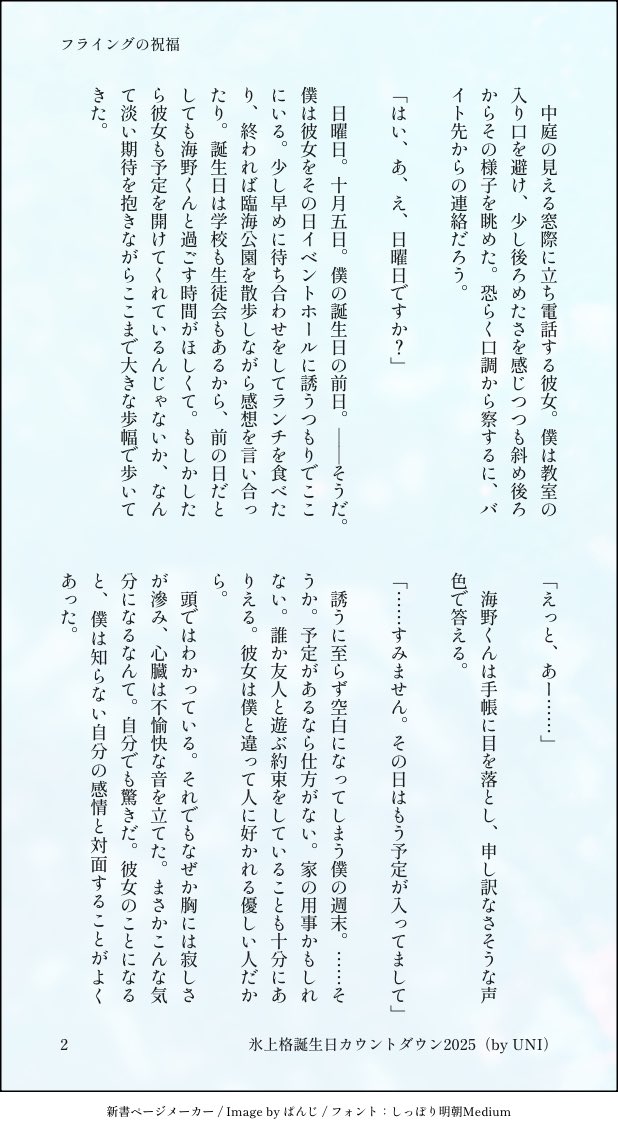 フライングの祝福
　中庭の見える窓際に立ち電話する彼女。僕は教室の
入り口を避け、少し後ろめたさを感じつつも斜め後ろ
からその様子を眺めた。恐らく口調から察するに、バ
イト先からの連絡だろう。
「はい、あ、え、日曜日ですか？」
　日曜日。十月五日。僕の誕生日の前日。――そうだ。
僕は彼女をその日イベントホールに誘うつもりでここ
にいる。少し早めに待ち合わせをしてランチを食べた
り、終われば臨海公園を散歩しながら感想を言い合っ
たり。誕生日は学校も生徒会もあるから、前の日だと
しても海野くんと過ごす時間がほしくて。もしかした
ら彼女も予定を開けてくれているんじゃないか、なん
て淡い期待を抱きながらここまで大きな歩幅で歩いて
きた。
「えっと、あー……」
　海野くんは手帳に目を落とし、申し訳なさそうな声
色で答える。
「……すみません。その日はもう予定が入ってまして」
　誘うに至らず空白になってしまう僕の週末。……そ
うか。予定があるなら仕方がない。家の用事かもしれ
ない。誰か友人と遊ぶ約束をしていることも十分にあ
りえる。彼女は僕と違って人に好かれる優しい人だか
ら。
　頭ではわかっている。それでもなぜか胸には寂しさ
が滲み、心臓は不愉快な音を立てた。まさかこんな気
分になるなんて。自分でも驚きだ。彼女のことになる
と、僕は知らない自分の感情と対面することがよく
あった。
2
氷上格誕生日カウントダウン2025（by UNI）
新書ページメーカー / Image by ぱんじ / フォント：しっぽり明朝Medium